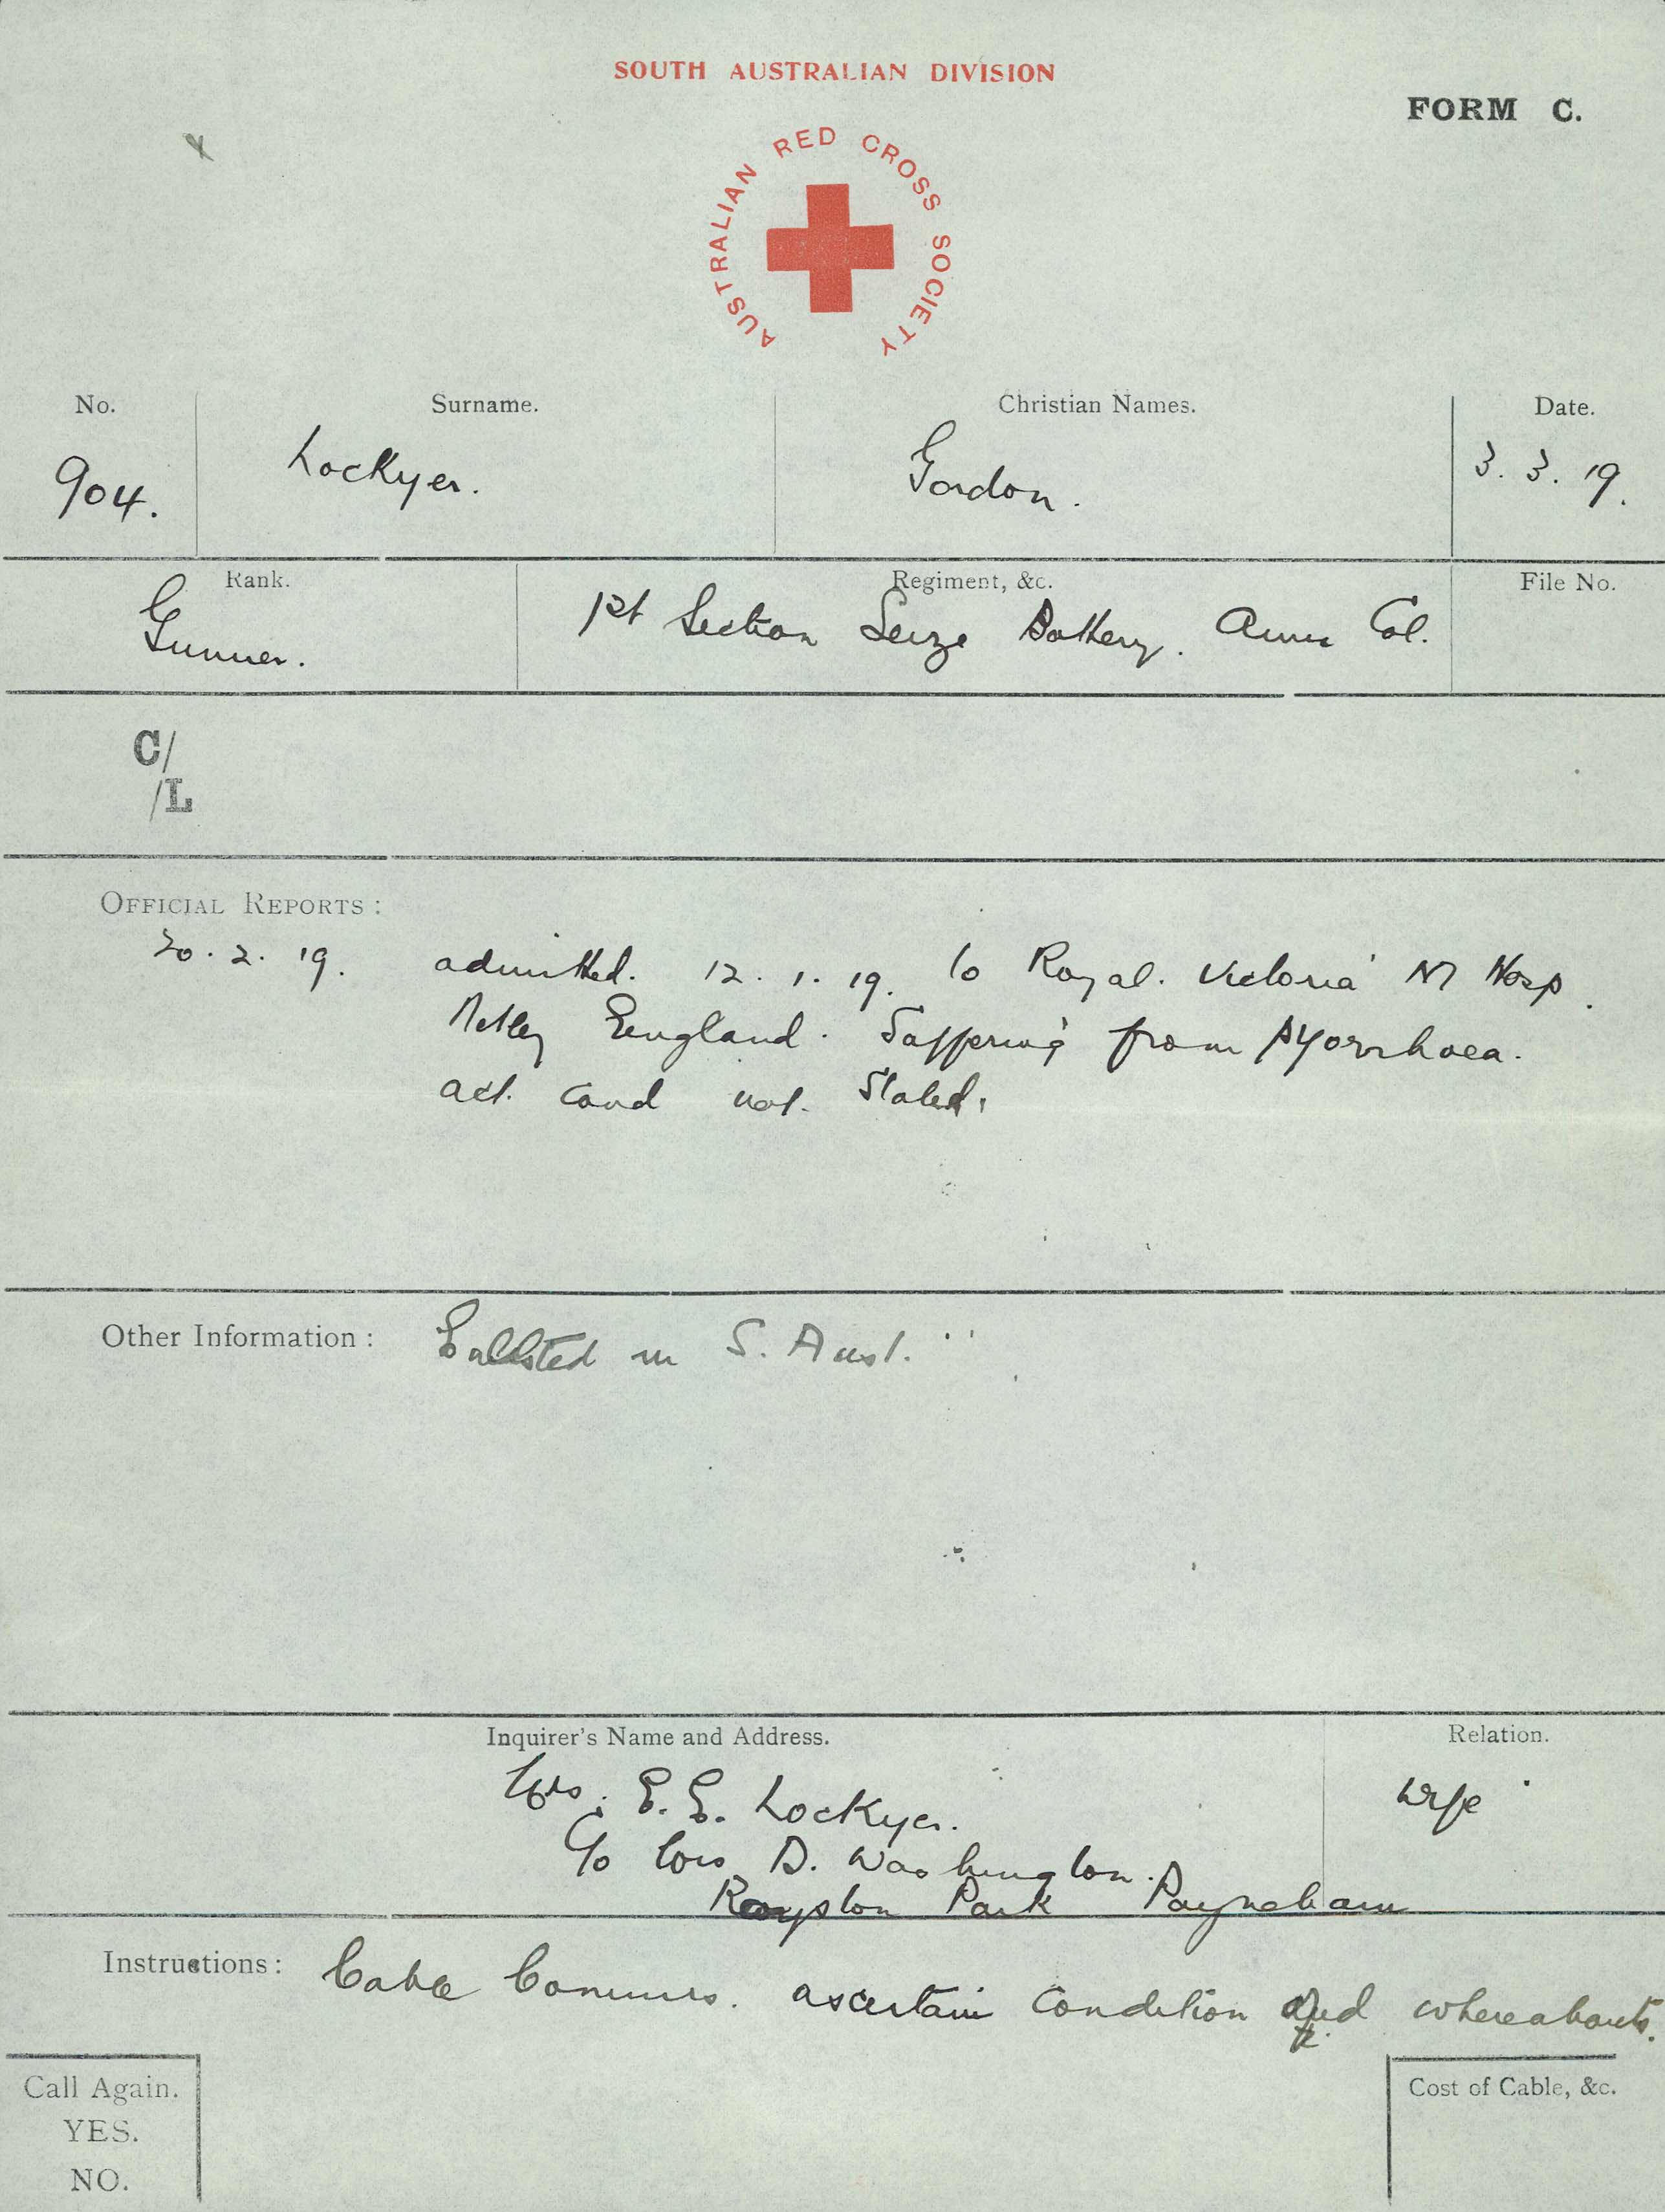 SOUTH AUSTRALIAN DIVISION
FORM C.
AUSTRALIAN RED CROSS SOCIETY
No.
Surname.
Christian Names.
Date.
904.
Lockyer.
Gordon.
3. 3. 19.
Rank.
Regiment, &c.
File No.
Gunner.
1st Section Seize Battery. Amm Col.
C/
/L
OFFICIAL REPORTS:
20. 2. 19. admitted. 12. 1. 19. to Royal. Victoria M Hosp.
Netley England. Suffering from Pyorrhoea.
act. cond not. Stated.
Other Information: Enlisted in S. Aust.
Inquirer's Name and Address.
Relation.
Mrs. E. E. Lockyer.
Wife
C/o Mrs D. Washington.
Royston Park Payneham
Instructions: Cable Commrs. ascertain condition and whereabouts.
Call Again.
YES.
NO.
Cost of Cable, &c.